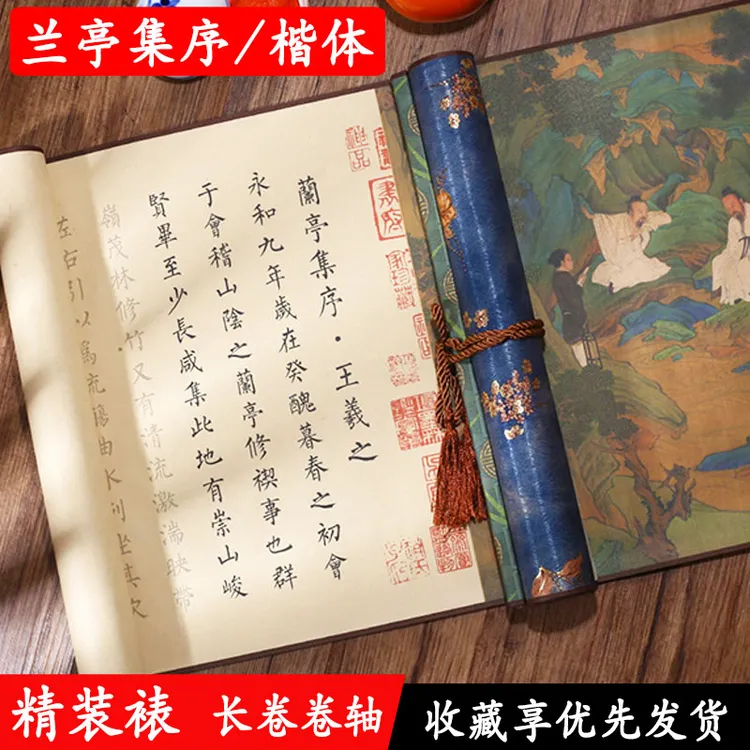 兰亭集序/楷体
蘭亭集序·王羲之
永和九年歲在癸醜暮春之初會
于會稽山陰之蘭亭修禊事也群
賢畢至少長咸集此地有崇山峻
嶺茂林修竹又有清流激湍映帶
左右引以為流觴曲水列坐其次
精装裱 长卷卷轴 收藏享优先发货